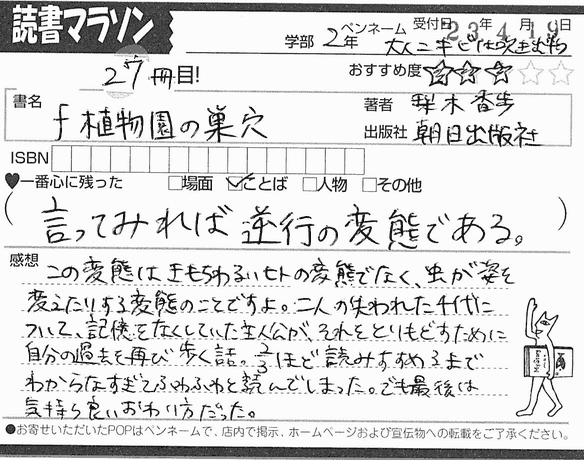 読書マラソン
受付日 23年4月19日
学部 2年 ペンネーム
27冊目!
おすすめ度 ★★★☆☆
書名 f植物園の巣穴
著者 梨木香歩
出版社 朝日出版社
ISBN
♥一番心に残った □場面 ☑ことば □人物 □その他
(言ってみれば逆行の変態である。)
感想
この変態はきもちわるいヒトの変態でなく、虫が姿を
変えたりする変態のことですよ。二人の失われた千代に
ついて、記憶をなくしていた主人公が、それをとりもどすために
自分の過去を再び歩く話。2/3ほど読みすすめるまで
わからなすぎてふわふわと読んでしまった。でも最後は
気持ち良いおわり方だった。
●お寄せいただいたPOPはペンネームで、店内で掲示、ホームページおよび宣伝物への転載をご了承ください。